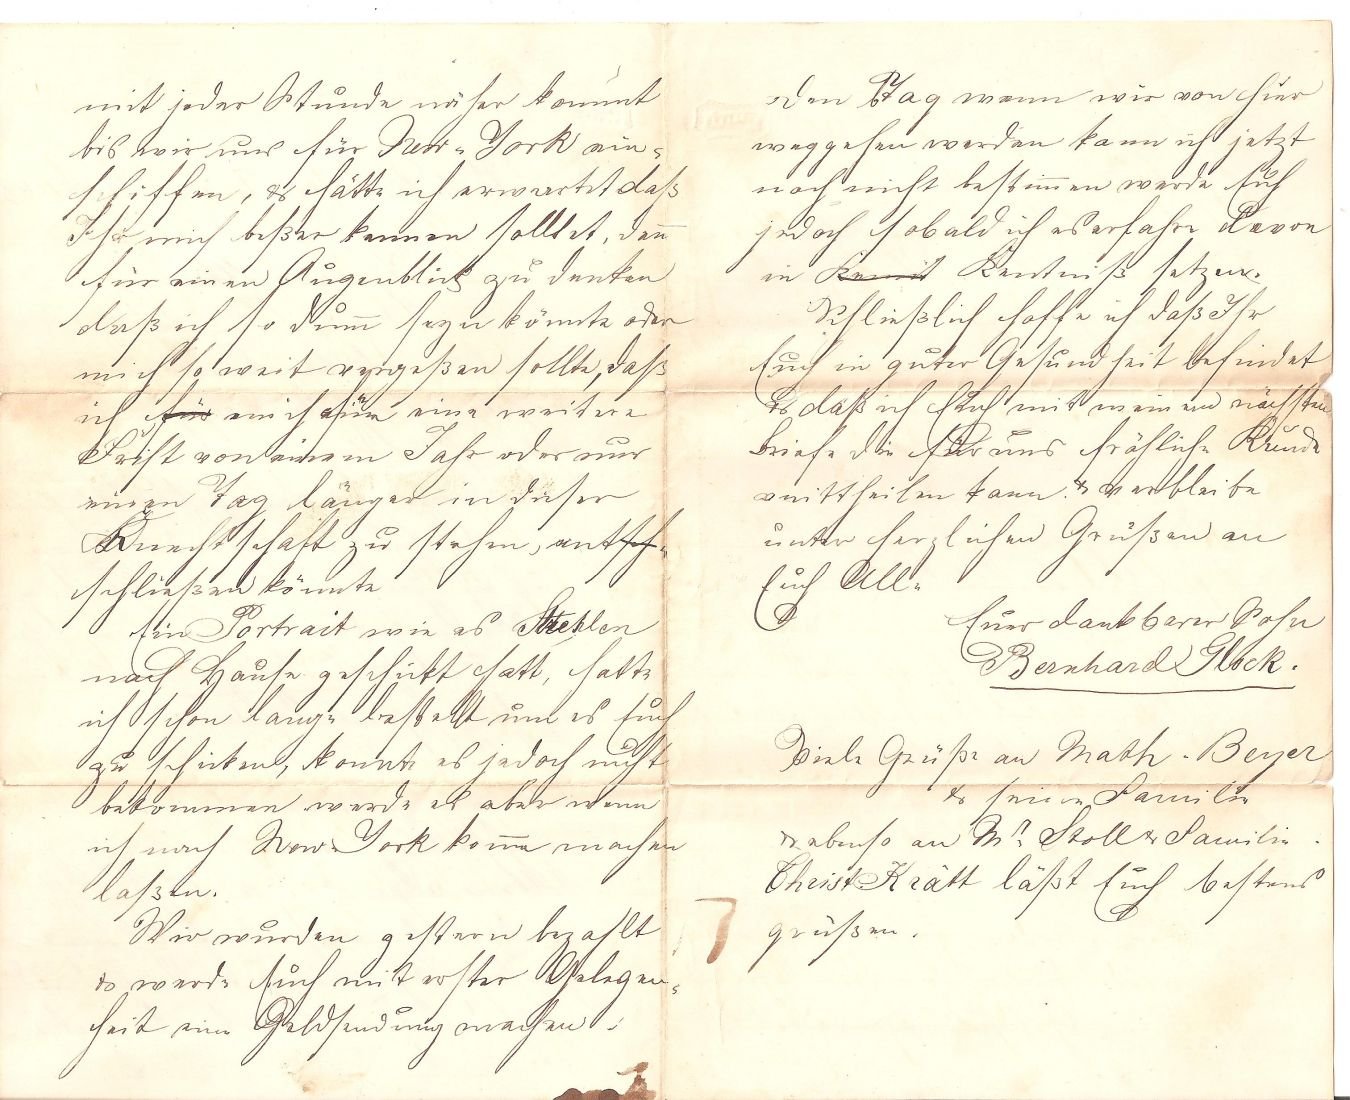 mit jeder Stunde näher kommt
bis wir uns für New-York ein-
schiffen, & hätte ich erwartet daß
Ihr mich beßer kennen solltet, den̄
für einen Augenblick zu denken
daß ich so dum̄ seyn könnte oder
mich so weit vergeßen sollte, daß
ich für mich für eine weitere
Frist von einem Jahr oder nur
einen Tag länger in dieser
Knechtschaft zu stehen, entsch-
schließen könnte
Ein Portrait wie es Strehlen
nach Hause geschickt hatt, hatte
ich schon lange bestellt um es Euch
zu schicken, konnte es jedoch nicht
bekommen werde es aber wenn
ich nach New-York kom̄e machen
laßen.
Wir wurden gestern bezahlt
& werde Euch mit erster Gelegen-
heit eine Geldsendung machen.
den Tag wann wir von hier
weggehen werden kann ich jetzt
noch nicht bestim̄en werde Euch
jedoch sobald ich es erfahre davon
in Kentniß setzen.
Schließlich hoffe ich daß Ihr
Euch in guter Gesundheit befindet
& daß ich Euch mit meinem nächsten
Briefe die für uns fröhliche Kunde
mittheilen kann. & verbleibe
unter herzlichen Grüßen an
Euch Alle
Euer dankbarer Sohn
Bernhard Glock.
Viele Grüße an Math. Beyer
& seine Familie
& ebenso an Mr. Stoll & Familie.
Christ Krätt läßt Euch bestens
grüßen.